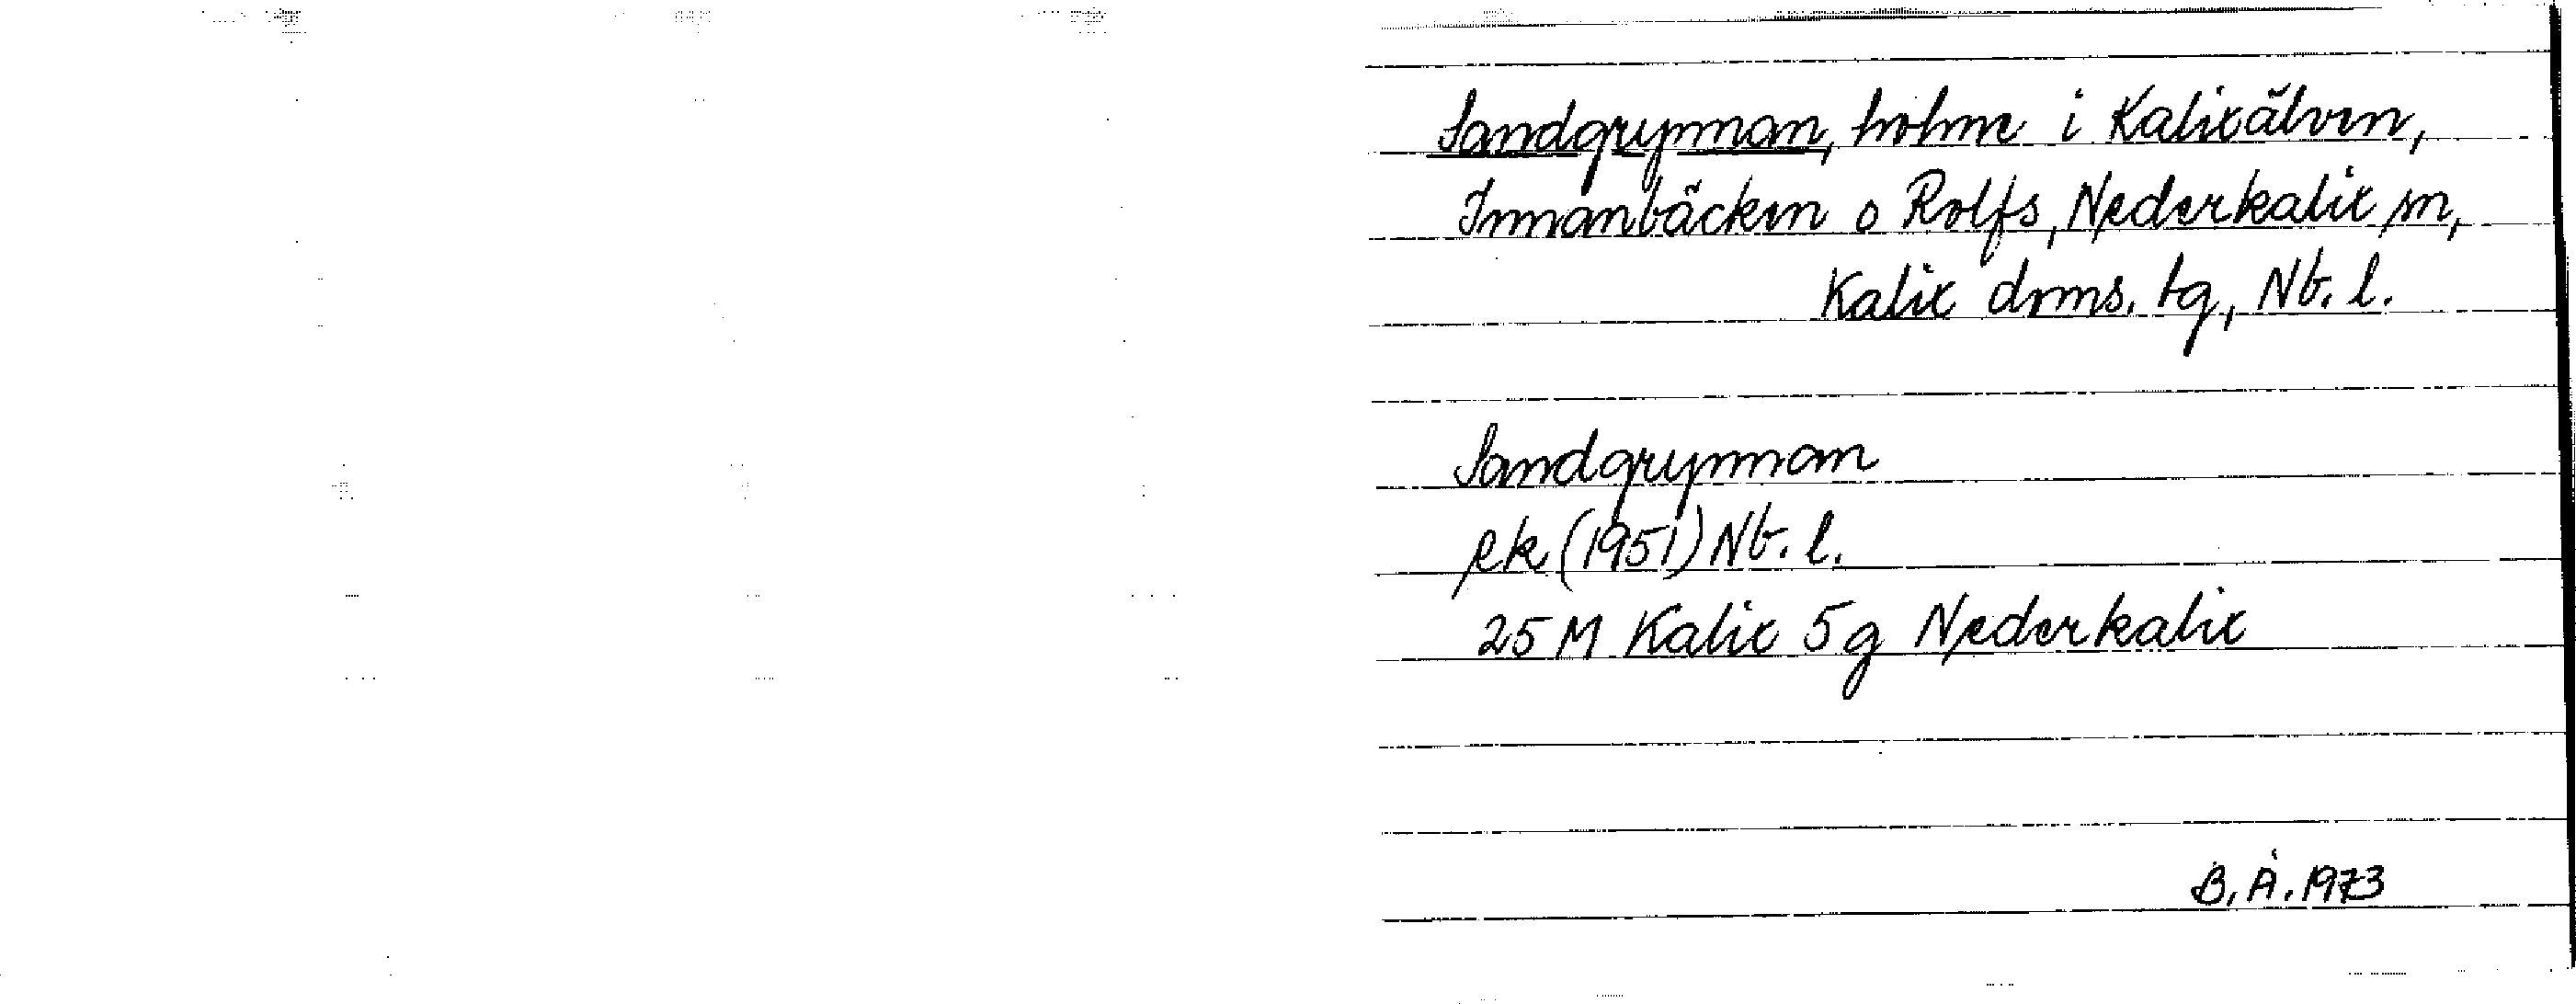 Sandgrynnan, holme i Kalixälven,
Innanbäcken o Rolfs, Nederkalix sn,
Kalix dms. tg, Nb. l.
Sandgrynnan
ek (1951) Nb. l.
25 M Kalix 5 g Nederkalix
B. Å. 1973